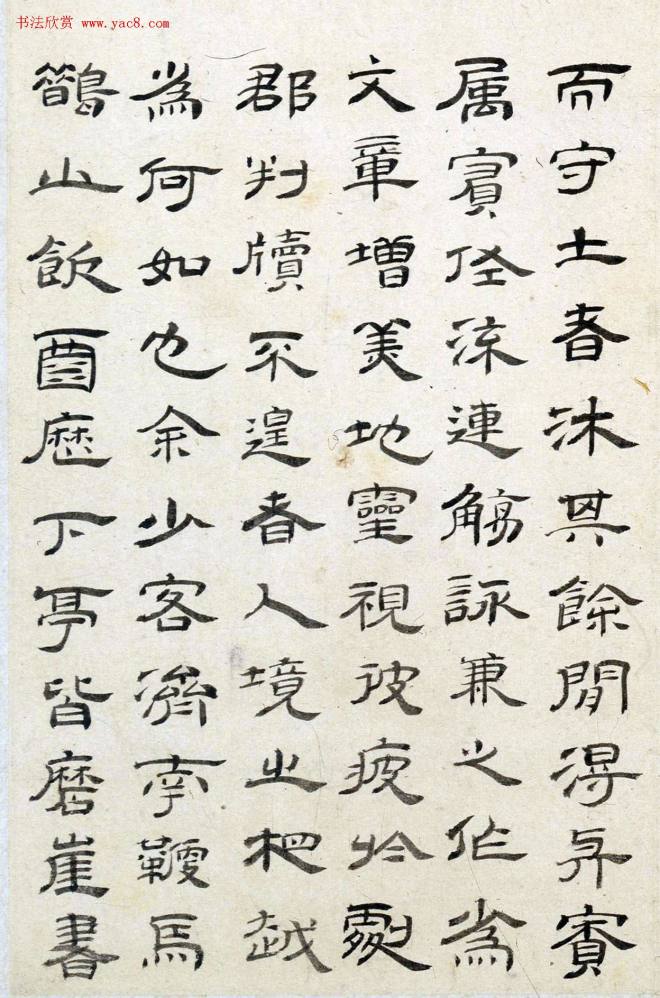 书法欣赏 www.yac8.com
而守土者沐其餘閒得與賓
属賓流連觴詠兼之作為
文章增美地靈視彼疲於劇
郡判牘不遑者人境之相越
為何如也余少客濟南鞭馬
鵲山飲酉歷下亭皆磨崖書